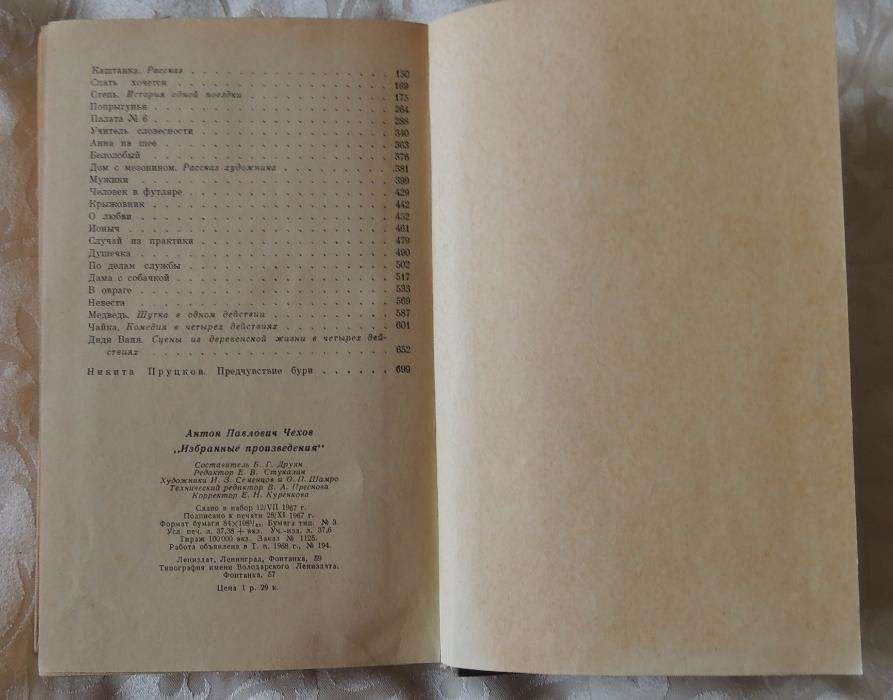 Каштанка. Рассказ . . . . . . . . . . . . . . . . . 150
Спать хочется . . . . . . . . . . . . . . . . . 169
Степь. История одной поездки . . . . . . . . . . . 175
Попрыгунья . . . . . . . . . . . . . . . . . 264
Палата № 6 . . . . . . . . . . . . . . . . . 288
Учитель словесности . . . . . . . . . . . . . . 340
Анна на шее . . . . . . . . . . . . . . . . . 363
Белолобый . . . . . . . . . . . . . . . . . 376
Дом с мезонином. Рассказ художника . . . . . . . . 381
Мужики . . . . . . . . . . . . . . . . . 399
Человек в футляре . . . . . . . . . . . . . . . 429
Крыжовник . . . . . . . . . . . . . . . . . 442
О любви . . . . . . . . . . . . . . . . . 452
Ионыч . . . . . . . . . . . . . . . . . 461
Случай из практики . . . . . . . . . . . . . . 479
Душечка . . . . . . . . . . . . . . . . . 490
По делам службы . . . . . . . . . . . . . . . 502
Дама с собачкой . . . . . . . . . . . . . . . 517
В овраге . . . . . . . . . . . . . . . . . 533
Невеста . . . . . . . . . . . . . . . . . 569
Медведь. Шутка в одном действии . . . . . . . . . 587
Чайка. Комедия в четырех действиях . . . . . . . . 601
Дядя Ваня. Сцены из деревенской жизни в четырех дей-
ствиях . . . . . . . . . . . . . . . . . 652
Никита Пруцков. Предчувствие бури . . . . . . 699
Антон Павлович Чехов
„Избранные произведения"
Составитель Б. Г. Друян
Редактор Е. В. Стукалин
Художники И. З. Семенцов и О. П. Шамро
Технический редактор В. А. Преснова
Корректор Е. Н. Куренкова
Сдано в набор 12/VII 1967 г.
Подписано к печати 28/XI 1967 г.
Формат бумаги 84×108¹/₃₂. Бумага тип. № 3.
Усл. печ. л. 37,38 + вкл. Уч.-изд. л. 37,6
Тираж 100 000 экз. Заказ № 1125.
Работа объявлена в Т. п. 1968 г., № 194.
Лениздат, Ленинград, Фонтанка, 59
Типография имени Володарского Лениздата,
Фонтанка, 57
Цена 1 р. 29 к.